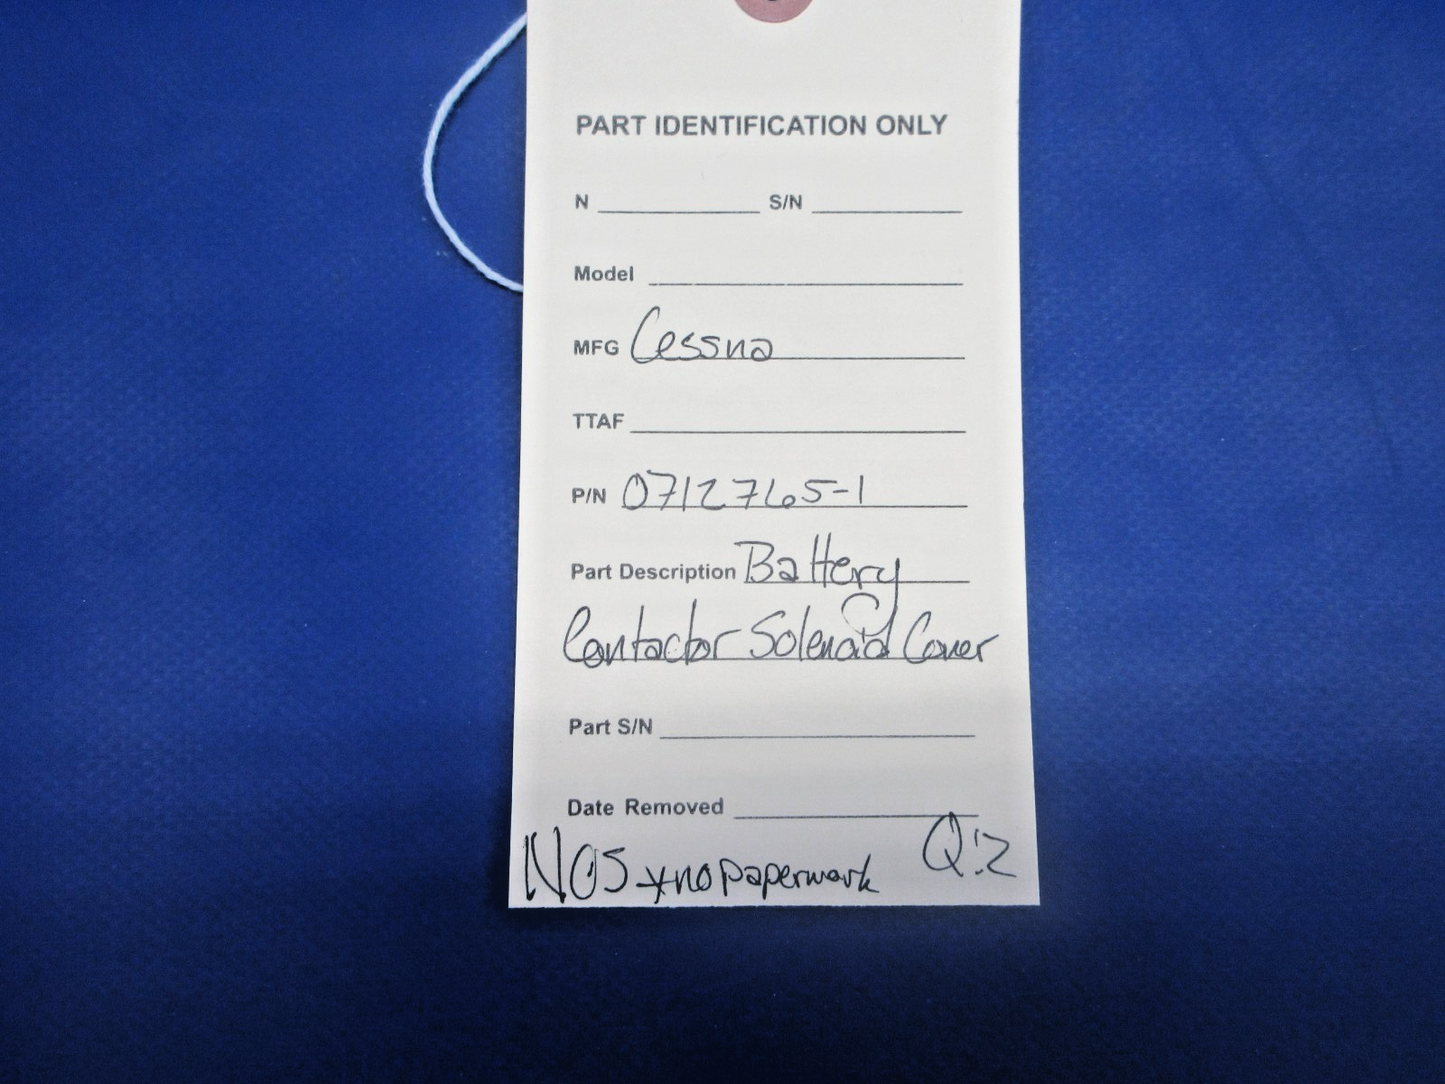 PART IDENTIFICATION ONLY
N S/N
Model
MFG Cessna
TTAF
P/N 0712765-1
Part Description Battery
Contactor Solenoid Cover
Part S/N
Date Removed
NOS *no paperwork Q:2